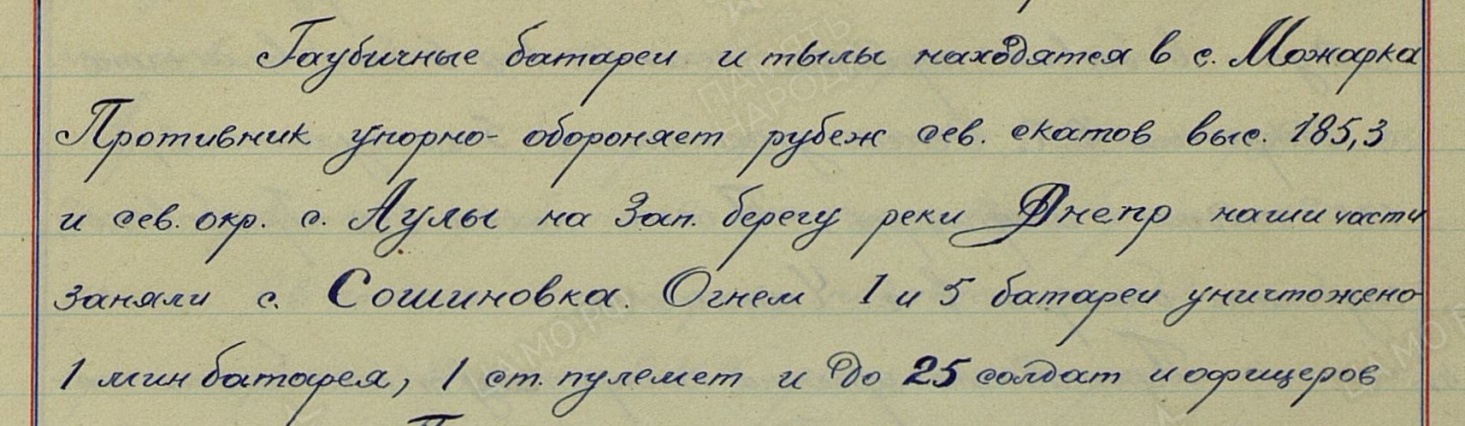 Гаубичные батареи и тылы находятся в с. Можарка
Противник упорно обороняет рубеж сев. скатов выс. 185,3
и сев. окр. с. Аулы на Зап. берегу реки Днепр наши части
заняли с. Сошиновка. Огнем 1 и 5 батареи уничтожено
1 мин батарея, 1 ст. пулемет и до 25 солдат и офицеров